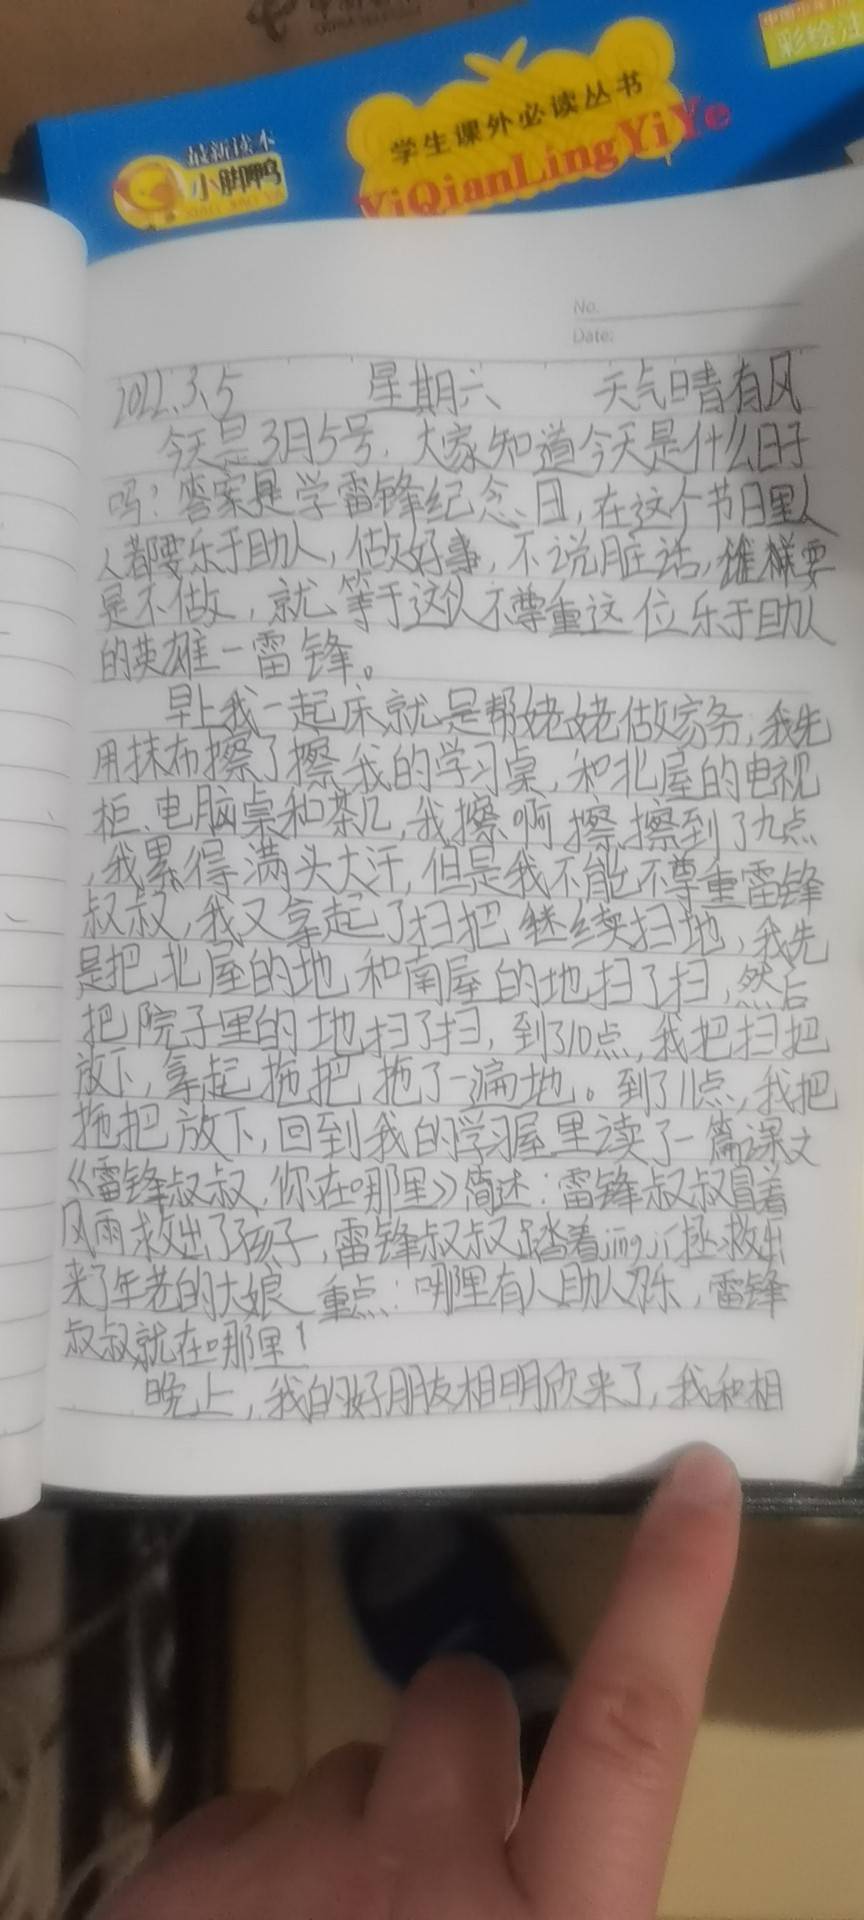 学生课外必读丛书
YiQianLingYiYe
最新读本
小脚鸭
彩绘注
No.
Date:
2022.3.5 星期六 天气晴有风
今天是3月5号，大家知道今天是什么日子
吗？答案是学雷锋纪念日，在这个节日里人
人都要乐于助人，做好事，不说脏话，谁样要
是不做，就等于这人不尊重这位乐于助人
的英雄一雷锋。
早上我一起床就是帮姥姥做家务，我先
用抹布擦了擦我的学习桌，和北屋的电视
柜、电脑桌和茶几，我擦啊擦，擦到了九点
，我累得满头大汗，但是我不能不尊重雷锋
叔叔，我又拿起了扫把继续扫地，我先
是把北屋的地和南屋的地扫了扫，然后
把院子里的地扫了扫，到了10点，我把扫把
放下，拿起拖把拖了一遍地。到了11点，我把
拖把放下，回到我的学习屋里读了一篇课文
《雷锋叔叔，你在哪里》简述：雷锋叔叔冒着
风雨救出了孩子，雷锋叔叔踏着jing ji拯救出
来了年老的大娘 重点：哪里有人助人为乐，雷锋
叔叔就在哪里！
晚上，我的好朋友相明欣来了，我和相